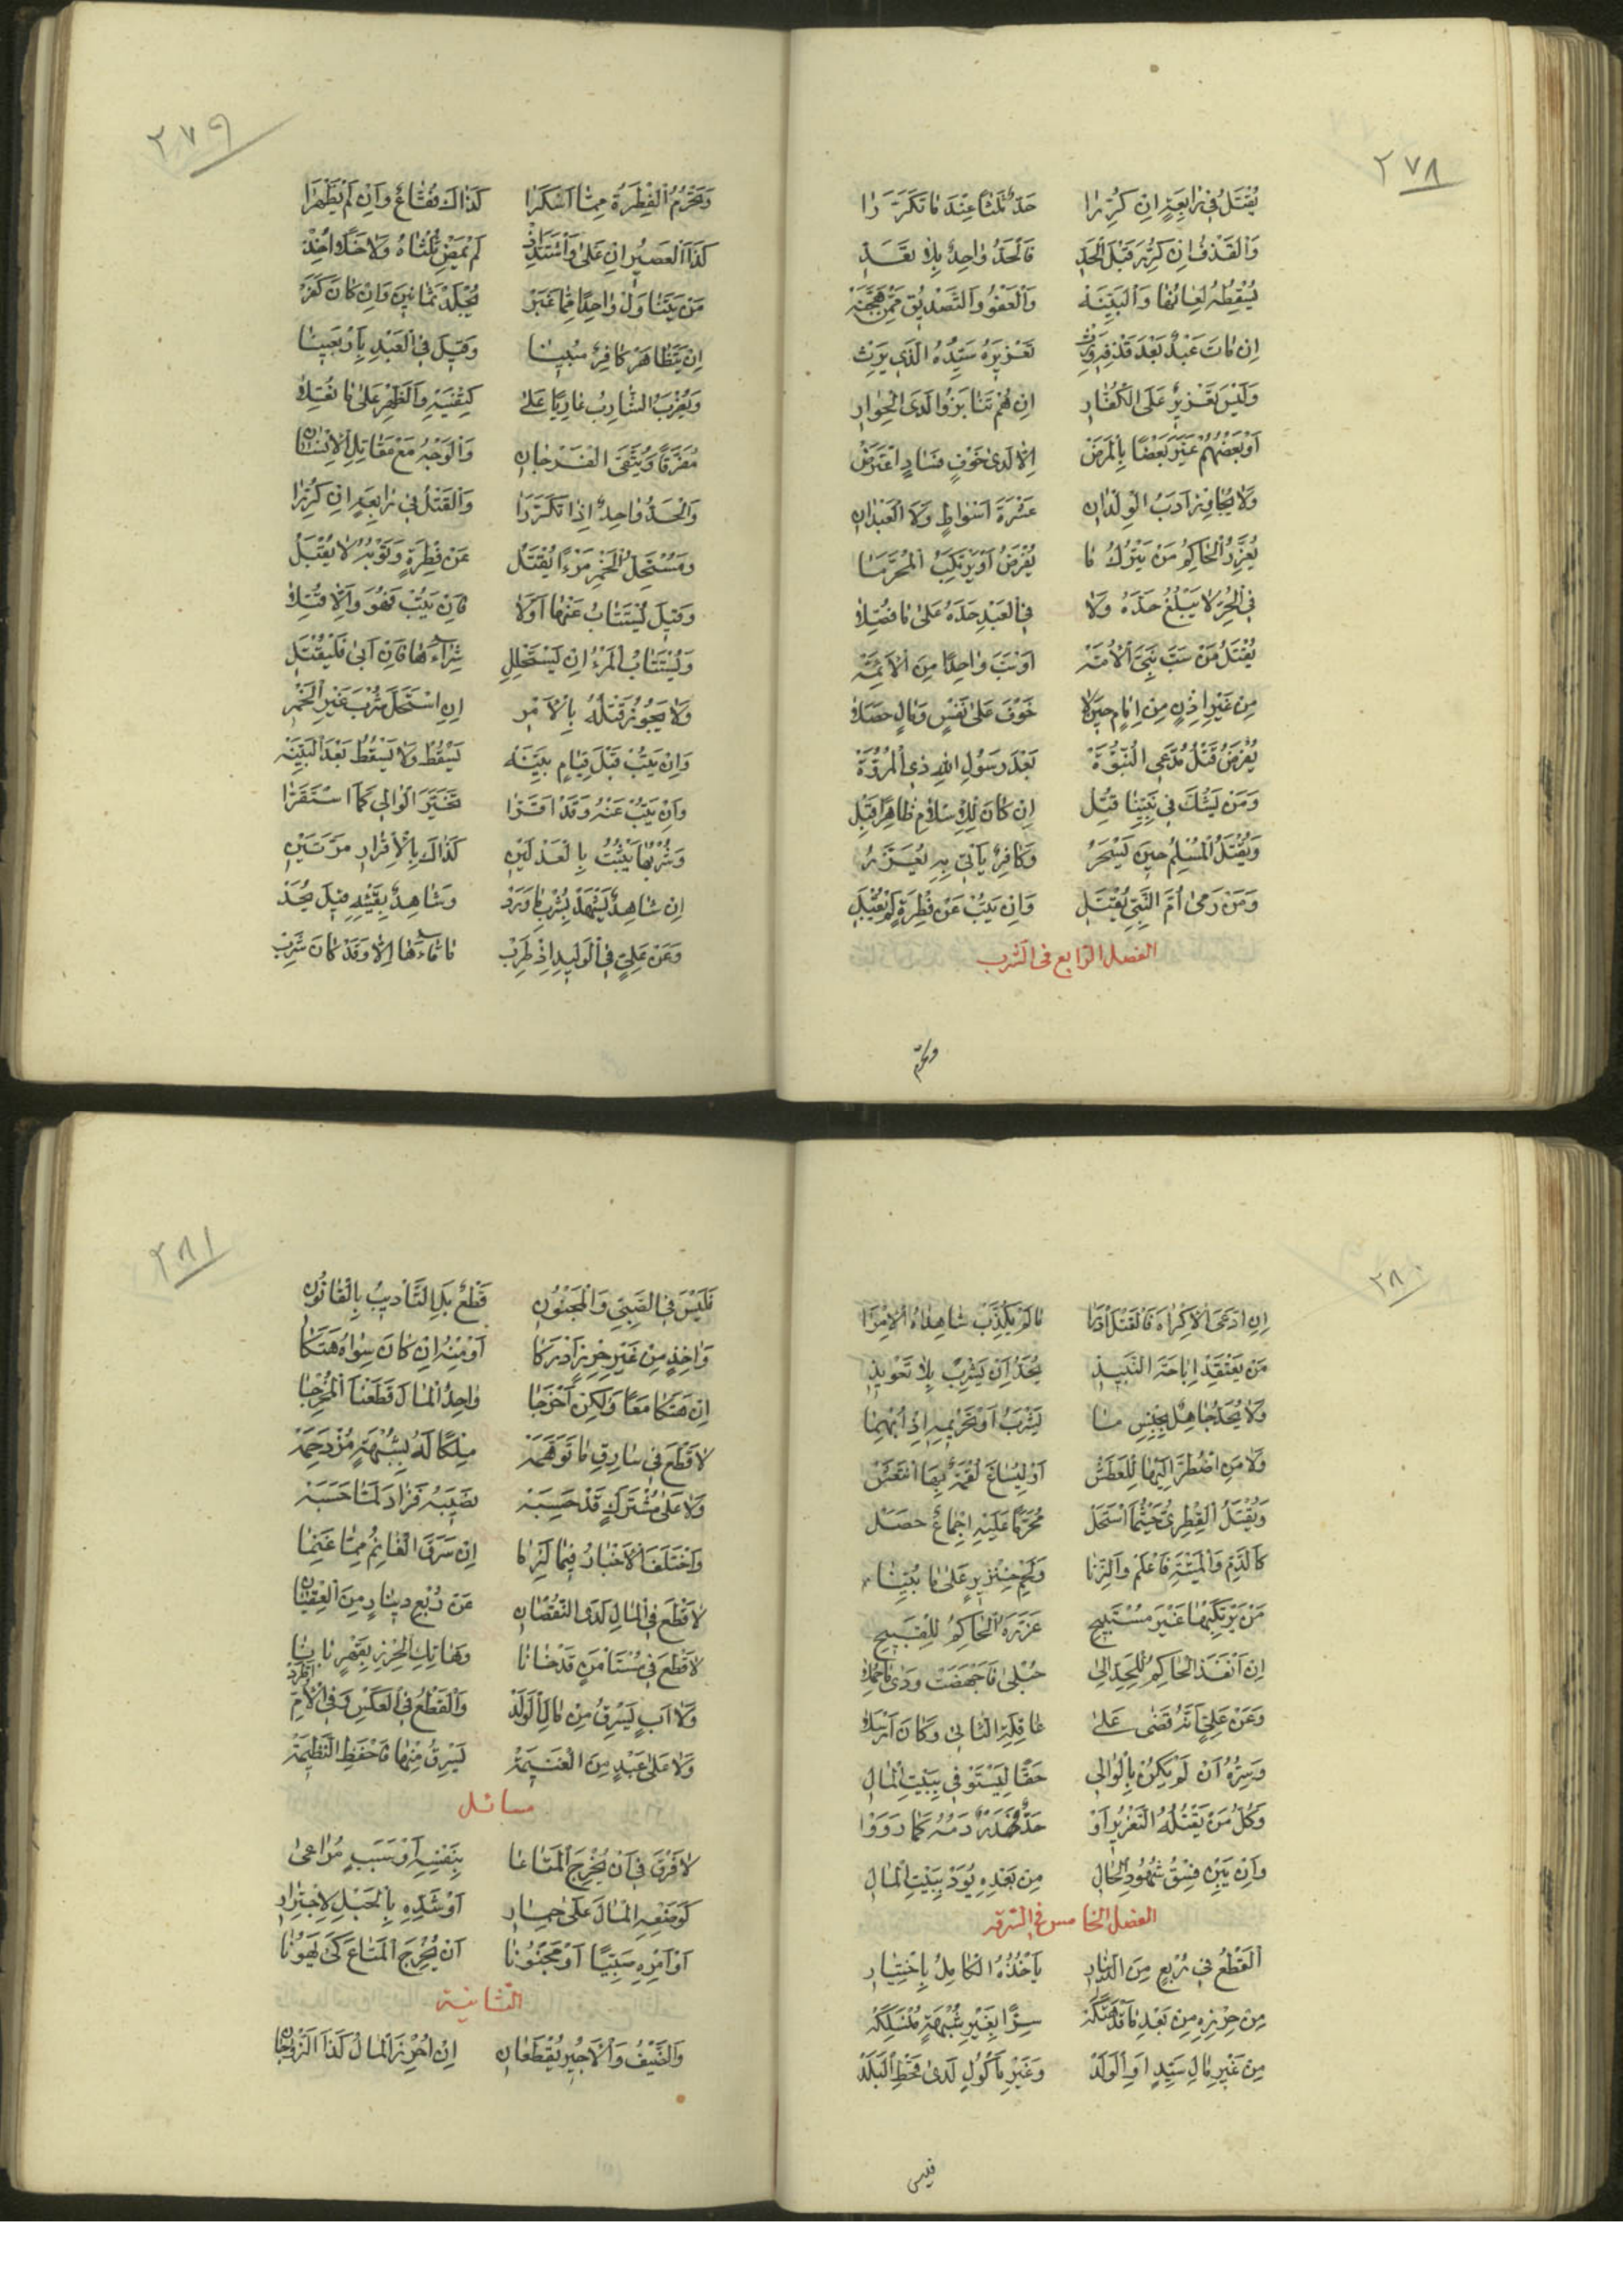 ٢٧٨
يُقْتَلُ فِي رَابِعَةٍ اِنْ كُرِّرَا حَدٌّ ثَلٰثًا عِنْدَ مَا تَكَرَّرَا
وَالْقَذْفُ اِنْ كُرِّرَ قَبْلَ الْحَدِّ فَالْحَدُّ وَاحِدٌ بِلَا تَعَدِّ
يُسْقِطُهُ لِعَانُهَا وَالْبَيِّنَهْ وَالْعَفْوُ وَالتَّصْدِيقُ مِمَّنْ
اِنْ مَاتَ عَبْدٌ بَعْدَ قَذْفِهِ وَرِثْ تَعْزِيرَهُ سَيِّدُهُ الَّذِي يَرِثْ
وَلَيْسَ تَعْزِيرٌ عَلَى الْكُفَّارِ اِنْ هُمْ تَنَابَزُوا لَدَى الْحِوَارِ
اَوْ بَعْضُهُمْ عَيَّرَ بَعْضًا بِالْمَرَضْ اِلَّا لَدٰى خَوْفِ فَسَادٍ اعْتَرَضْ
وَلَا يُجَاوِزْ اَدَبُ الْوِلْدَانِ عَشْرَةَ اَسْوَاطٍ وَلَا الْعَبْدَانِ
يُعَزِّرُ الْحَاكِمُ مَنْ يَتْرُكُ مَا يُفْرَضُ اَوْ يَرْتَكِبُ الْمُحَرَّمَا
فِي الْحُرِّ لَا يَبْلُغُ حَدَّهُ وَلَا فِي الْعَبْدِ حَدَّهُ عَلٰى مَا فُصِّلَا
يُقْتَلُ مَنْ سَبَّ نَبِيَّ الْاُمَّهْ اَوْ سَبَّ وَاحِدًا مِنَ الْاَئِمَّهْ
مِنْ غَيْرِ اِذْنٍ مِنْ اِمَامٍ حَيْثُ لَا خَوْفَ عَلٰى نَفْسٍ وَمَالٍ حَصَلَا
يُفْرَضُ قَتْلُ مُدَّعِي النُّبُوَّةْ بَعْدَ رَسُولِ اللهِ ذِي الْمُرُوَّةْ
وَمَنْ يَشُكَّ فِي نَبِيِّنَا قُتِلْ اِنْ كَانَ لِلْاِسْلَامِ ظَاهِرًا قَبِلْ
وَيُقْتَلُ الْمُسْلِمُ حِينَ يَسْحَرُ وَكَافِرٌ يَأْتِي بِهِ يُعَزَّرُ
وَمَنْ رَمٰى اُمَّ النَّبِيِّ يُقْتَلِ وَاِنْ يَتُبْ عَنْ فِطْرَةٍ لَمْ يُقْبَلِ
الفصل الرابع في الشرب
ويحرم
٢٧٩
وَتَحْرُمُ الْقَطْرَةُ مِمَّا اَسْكَرَا كَذَاكَ فُقَّاعٌ وَاِنْ لَمْ يَظْهَرَا
كَذَا الْعَصِيرُ اِنْ غَلٰى وَاشْتَدَّ اِذْ لَمْ يَمْضِ ثُلُثَاهُ وَلَا خَلًّا اُخِذْ
مَنْ يَتَنَاوَلْ وَاحِدًا مِمَّا غَبَرْ يُجْلَدْ ثَمَانِينَ وَاِنْ كَانَ كَفَرْ
اِنْ يَتَظَاهَرْ كَافِرٌ مُبِينَا وَقِيلَ فِي الْعَبْدِ بِاَرْبَعِينَا
وَيُضْرَبُ الشَّارِبُ عَارِيًا عَلٰى كِتْفَيْهِ وَالظَّهْرِ عَلٰى مَا نُقِلَا
مُفَرَّقًا وَيُتَّقَى الْفَرْجَانِ وَالْوَجْهُ مَعْ مَقَاتِلِ الْاِنْسَانِ
وَالْحَدُّ وَاحِدٌ اِذَا تَكَرَّرَا وَالْقَتْلُ فِي رَابِعَةٍ اِنْ كُرِّرَا
وَمُسْتَحِلُّ الْخَمْرِ مَرْءًا يُقْتَلُ عَنْ فِطْرَةٍ وَتَوْبُهُ لَا يُقْبَلُ
وَقِيلَ يُسْتَتَابُ عَنْهَا اَوَّلَا فَاِنْ يَتُبْ فَهُوَ وَاِلَّا قُتِلَا
وَيُسْتَتَابُ الْمَرْءُ اِنْ يَسْتَحْلِلِ شِرَاءَهَا فَاِنْ اَبٰى فَلْيُقْتَلِ
وَلَا يَجُوزُ قَتْلُهُ بِالْاَمْرِ اِنِ اسْتَحَلَّ شُرْبَ غَيْرِ الْخَمْرِ
وَاِنْ يَتُبْ قَبْلَ قِيَامِ بَيِّنَهْ يَسْقُطْ وَلَا يَسْقُطُ بَعْدَ الْبَيِّنَهْ
وَاِنْ يَتُبْ عَنْهُ وَقَدْ اَقَرَّا تَخَيَّرَ الْوَالِي كَمَا اسْتَقَرَّا
وَشُرْبُهَا يَثْبُتُ بِالْعَدْلَيْنِ كَذَاكَ بِالْاِقْرَارِ مَرَّتَيْنِ
اِنْ شَاهِدٌ يَشْهَدْ بِشُرْبِهَا وَرَدْ وَشَاهِدٌ بِقَيْئِهِ قِيلَ يُحَدْ
وَعَنْ عَلِيٍّ فِي الْوَلِيدِ اِذْ طَرِبْ مَا قَاءَهَا اِلَّا وَقَدْ كَانَ شَرِبْ
٢٨٠
اِنِ ادَّعَى الْاِكْرَاهَ فَالْقَتْلَ ادْرَأَا مَا لَمْ يُكَذِّبْ شَاهِدَاهُ الْاِمْرَا
مَنْ يَعْتَقِدْ اِبَاحَةَ النَّبِيذِ يُحَدُّ اِنْ يَشْرَبْ بِلَا تَعْوِيذِ
وَلَا يُحَدُّ جَاهِلٌ بِجِنْسِ مَا يَشْرَبُ اَوْ تَحْرِيمِهِ اِذْ اُبْهِمَا
وَلَا مَنِ اضْطُرَّ اِلَيْهَا لِلْعَطَشْ اَوْ لِيُسَاغَ لُقْمَةٌ بِهَا انْتَعَشْ
وَيُقْتَلُ الْفِطْرِيُّ حَيْثُمَا اسْتَحَلْ مُحَرَّمًا عَلَيْهِ اِجْمَاعٌ حَصَلْ
كَالدَّمِ وَالْمَيْتَةِ فَاعْلَمْ وَالزِّنَا وَلَحْمِ خِنْزِيرٍ عَلٰى مَا بُيِّنَا
مَنْ يَرْتَكِبْهَا غَيْرَ مُسْتَبِيحِ عَزَّرَهُ الْحَاكِمُ لِلْقَبِيحِ
اِنْ اَنْفَذَ الْحَاكِمُ لِلْحَدِّ اِلٰى حُبْلٰى فَاَجْهَضَتْ وَدٰى
وَعَنْ عَلِيٍّ اَنَّهُ قَضٰى عَلٰى عَاقِلَةِ الثَّانِي وَكَانَ اَرْسَلَا
وَسِرُّهُ اَنْ لَمْ يَكُنْ بِالْوَالِي حَقًّا لِيَسْتَوْفِي بِبَيْتِ الْمَالِ
وَكُلُّ مَنْ يَقْتُلُهُ التَّعْزِيرُ اَوْ حَدٌّ فَهَدْرٌ دَمُهُ كَمَا رَوَوْا
وَاِنْ يَبِنْ فِسْقُ شُهُودِ الْحَالِ مِنْ بَعْدِهِ يُودَ بِبَيْتِ الْمَالِ
الفصل الخامس في السرقه
اَلْقَطْعُ فِي رُبْعٍ مِنَ الدِّينَارِ يَأْخُذُهُ الْكَامِلُ بِاخْتِيَارِ
مِنْ حِرْزِهِ مِنْ بَعْدِ مَا قَدْ هَتَكَهْ سِرًّا بِغَيْرِ شُبْهَةٍ
مِنْ غَيْرِ مَالِ سَيِّدٍ اَوِ الْوَلَدْ وَغَيْرِ مَأْكُولٍ لَدٰى قَحْطِ الْبَلَدْ
فليس
٢٨١
فَلَيْسَ فِي الصَّبِيِّ وَالْمَجْنُونِ قَطْعٌ بَلِ التَّأْدِيبُ بِالْقَانُونِ
وَآخِذٍ مِنْ غَيْرِ حِرْزٍ اَدْرَكَا اَوْ مِنْهُ اِنْ كَانَ سِوَاهُ هَتَكَا
اِنْ هَتَكَا مَعًا وَلٰكِنْ اَخْرَجَا وَاحِدٌ الْمَالَ قَطَعْنَا الْمُخْرِجَا
لَا قَطْعَ فِي سَارِقِ مَا تَوَهَّمَهْ مِلْكًا لَهُ بِشُبْهَةٍ مُزْدَحِمَهْ
وَلَا عَلٰى مُشْتَرَكٍ قَدْ حَسِبَهْ نَصِيبَهُ فَزَادَ لَمَّا حَسَبَهْ
وَاخْتَلَفَ الْاَخْبَارُ فِيمَا لَزِمَا اِنْ سَرَقَ الْغَانِمُ مِمَّا غَنِمَا
لَا قَطْعَ فِي الْمَالِ لَدَى النُّقْصَانِ عَنْ رُبْعِ دِينَارٍ مِنَ الْعِقْيَانِ
لَا قَطْعَ فِي مُسْتَأْمَنٍ قَدْ خَانَا وَهَاتِكِ الْحِرْزِ بِقَهْرٍ بَانَا
وَلَا اَبٍ يَسْرِقُ مِنْ مَالِ الْوَلَدْ وَالْقَطْعُ فِي الْعَكْسِ وَفِي الْاُمِّ اطَّرَدْ
وَلَا عَلٰى عَبْدٍ مِنَ الْغَنِيمَهْ يَسْرِقُ مِنْهَا فَاحْفَظِ النَّظِيمَهْ
مسائل
لَا فَرْقَ فِي اَنْ يُخْرِجَ الْمَتَاعَا بِنَفْسِهِ اَوْ سَبَبٍ مُرَاعٰى
كَوَضْعِهِ الْمَالَ عَلٰى حِمَارِ اَوْ شَدِّهِ بِالْحَبْلِ لِاجْتِرَارِ
اَوْ اَمْرِهِ صَبِيًّا اَوْ مَجْنُونَا اَنْ يُخْرِجَ الْمَتَاعَ كَيْ يَهُونَا
الثانية
وَالضَّيْفُ وَالْاَجِيرُ يُقْطَعَانِ اِنْ اُحْرِزَ الْمَالُ كَذَا الزَّوْجَانِ